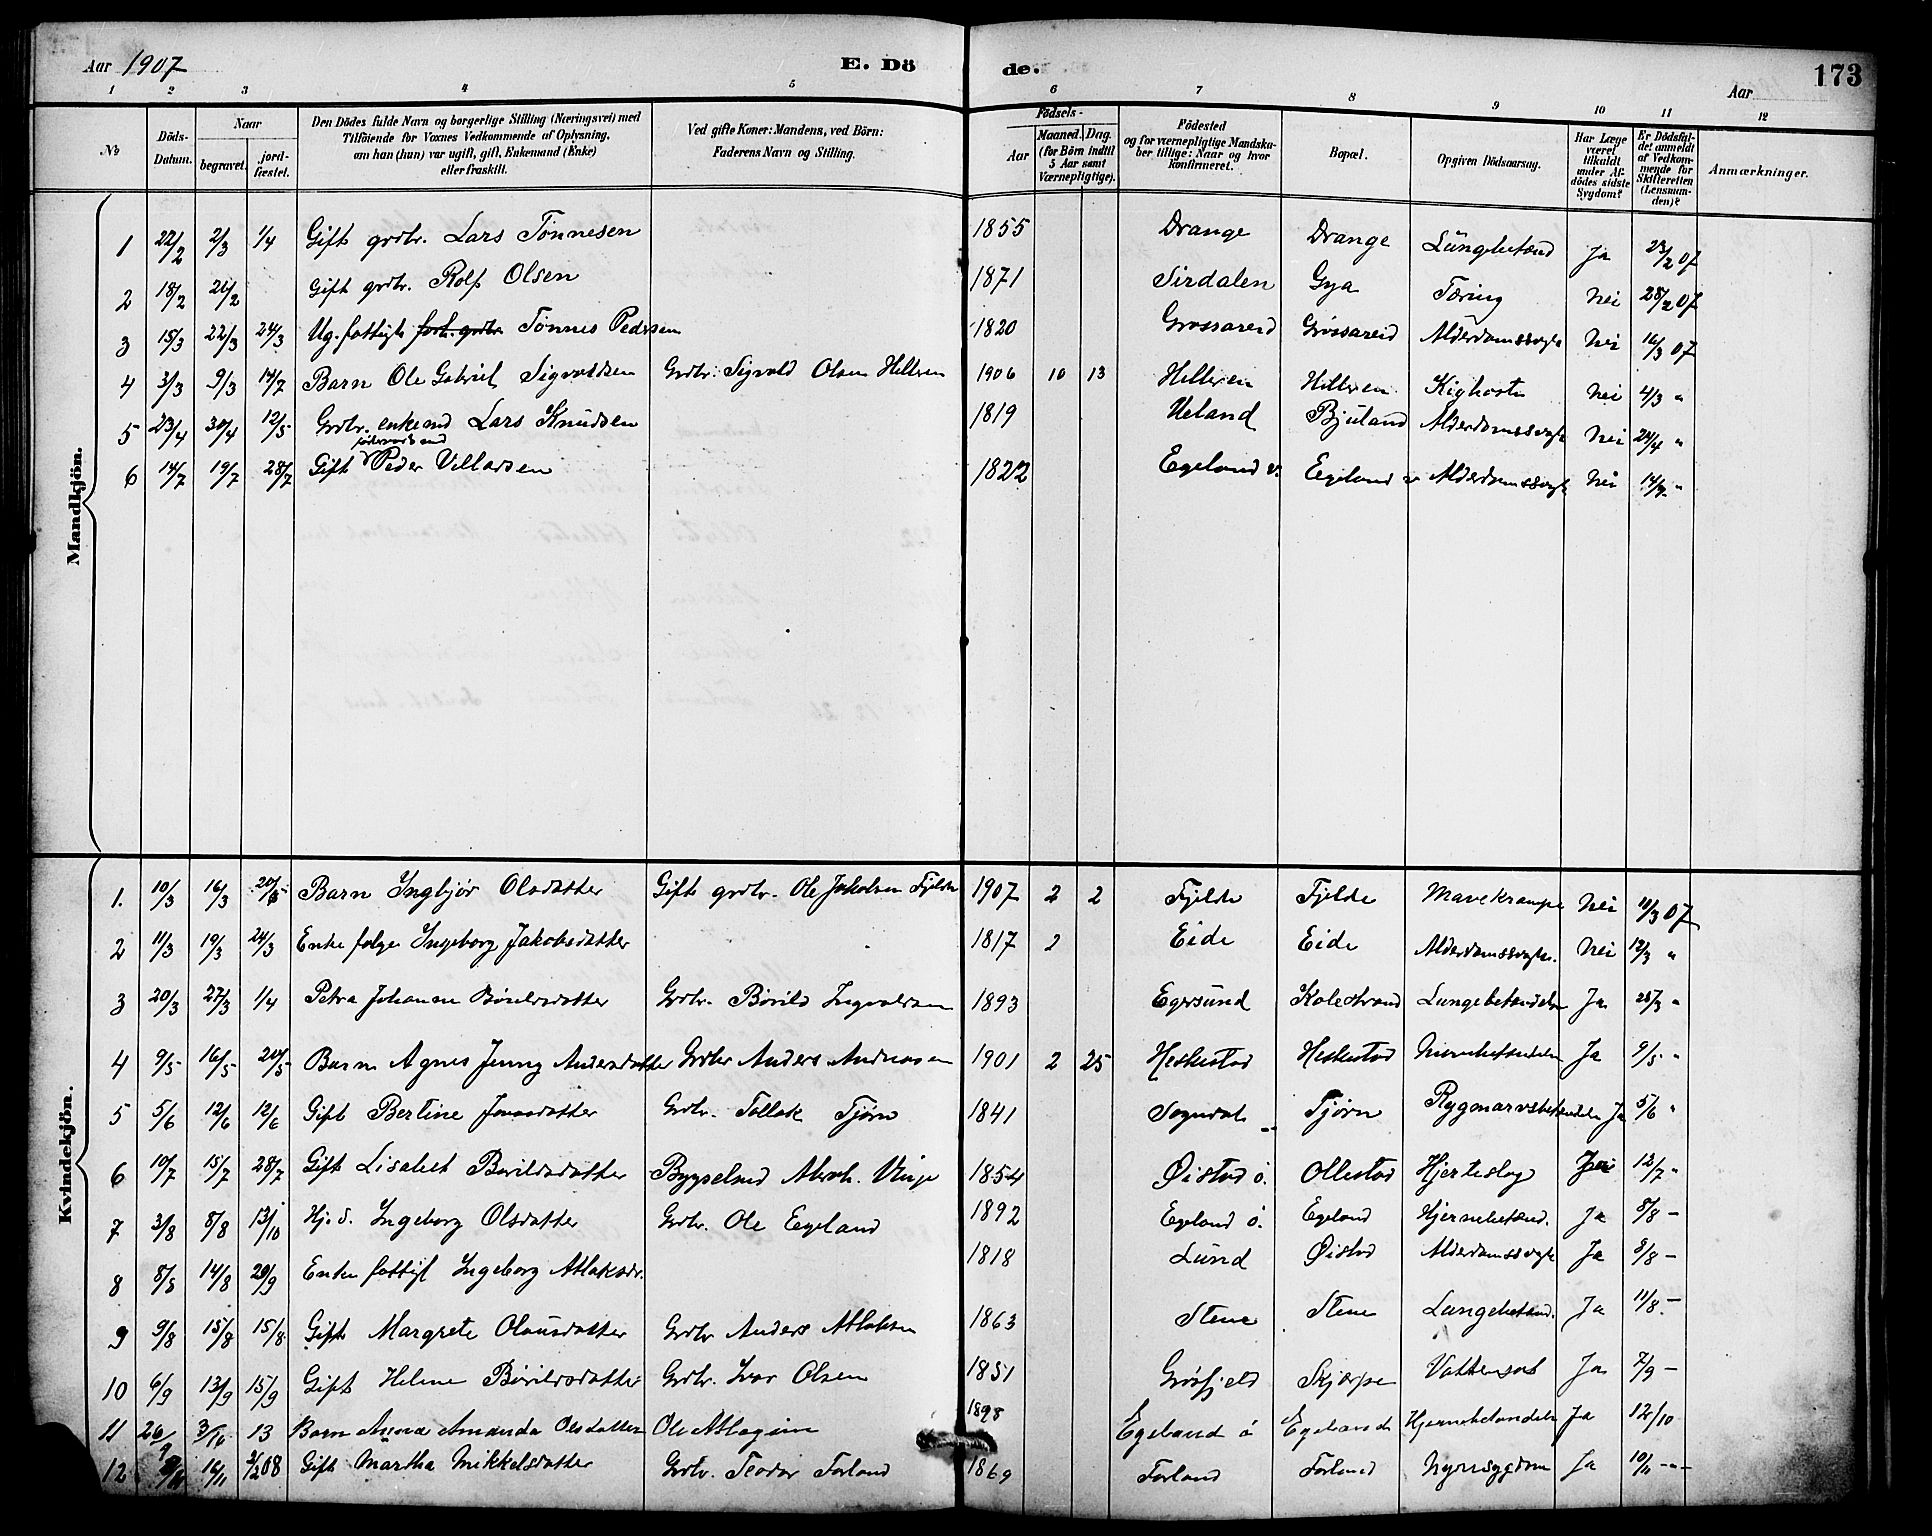 Aar 1907 E. Dö de. Aar 173
1 2 3 4 5 6 7 8 9 10 11 12
No Döds-Datum. Naar begravet. jord-fæstet. Den Dödes fulde Navn og borgerlige Stilling (Næringsvei) med Tilföiende for Voxnes Vedkommende af Oplysning, om han (hun) var ugift, gift, Enkemand (Enke) eller fraskilt. Ved gifte Koner: Mandens, ved Börn: Faderens Navn og Stilling. Födsels- Aar Maaned. Dag. (for Börn indtil 5 Aar samt Værnepligtige). Födested og for værnepligtige Mandskaber tillige: Naar og hvor konfirmeret. Bopæl. Opgiven Dödsaarsag. Har Læge været tilkaldt under Afdödes sidste Sygdom? Er Dödsfaldet anmeldt af Vedkommende for Skifteretten (Lensmanden)? Anmærkninger.
Mandkjön.
1 22/2 2/3 1/4 Gift grdbr. Lars Tönnesen 1855 Drange Drange Lüngebetænd Ja 23/2 07
2 18/2 21/2 Gift grdbr. Rolf Olsen 1871 Sirdalen Gya Tæring Nei 28/2 07
3 15/3 22/3 24/3 Ug. fattigl. forh. grdbr. Tönnes Pedersen 1820 Grøssareid Grøssareid Alderdomssvaghe Nei 16/3 07
4 3/3 9/3 14/7 Barn Ole Gabriel Sigvaldsen Grdbr. Sigvald Olsen Helleren 1906 10 13 Helleren Helleren Kighoste Nei 4/3 "
5 23/4 30/4 12/5 Grdbr. enkemd Lars Knudsen 1819 Ueland Bjuland Alderdomssvagh Nei 24/4 "
6 14/7 19/7 28/7 Gift Peder Villarsen 1822 Egeland v. Eegeland v Alderdomssvagh Nei 14/7 "
Kvindekjön.
1. 10/3 16/3 20/5 Barn Ingbjør Olsdatter Gift grdbr. Ole Jakobsen Fjelde 1907 2 2 Fjelde Fjelde Mavekrampe Nei 11/3 07
2 11/3 19/3 24/3 Enke følge Ingeborg Jakobsdatter 1817 2 Eide Eide Alderdomssvaghe. Nei 12/3 "
3 20/3 27/3 1/4 Petra Johanne Børildsdatter Grdbr. Børild Ingvaldsen 1893 Egersund Kolestrand Lungebetændelse Ja 25/3 "
4 9/5 16/5 20/5 Barn Agnes Jenny Andersdatter Grdbr Anders Andreasen 1901 2 25 Heskestad Heskestad Ja 9/5 "
5 5/6 12/6 12/6 Gift Bertine Jonasdatter Grdbr. Tollak Tjørn 1841 Sogndal Tjørn Rygmarvsbetændelse Ja 5/6 "
6 10/7 15/7 28/7 Gift Lisabet Børildsdatter Abrah. 1854 Øistad ö. Ollestad Hjerteslag 12/7 "
7 3/8 8/8 13/10 Hj. d. Ingeborg Olsdatter Grdbr. Ole Egeland 1892 Egeland ö. Egeland Hjernebetænd. Ja 5/8 -
8 8/8 14/8 29/9 Enke fattigl Ingeborg Atlaksdr. 1818 Lund Øistad Alderdomssvagh Ja 8/8 -
9 9/8 15/8 15/8 Gift Margrete Olausdatter Grdbr Anders Atlaksen 1863 Stene Stene Lungebetænd. Ja 11/8 -
10 6/9 13/9 15/9 Gift Helene Børildsdatter Grdbr. Ivar Olsen 1851 Grøsfjeld Skjerpe Vattersot Ja 7/9 -
11 26/9 3/10 13 Barn Anna Amanda Olsdatter Ole 1898 Egeland ö Egeland Hjernebetændelse Ja 12/10
12 16/11 2/2 08 Gift Martha Mikkelsdatter Grdbr. Teodor Forland 1869 Forland Forland Nyresygdom Ja 10/11 -"-